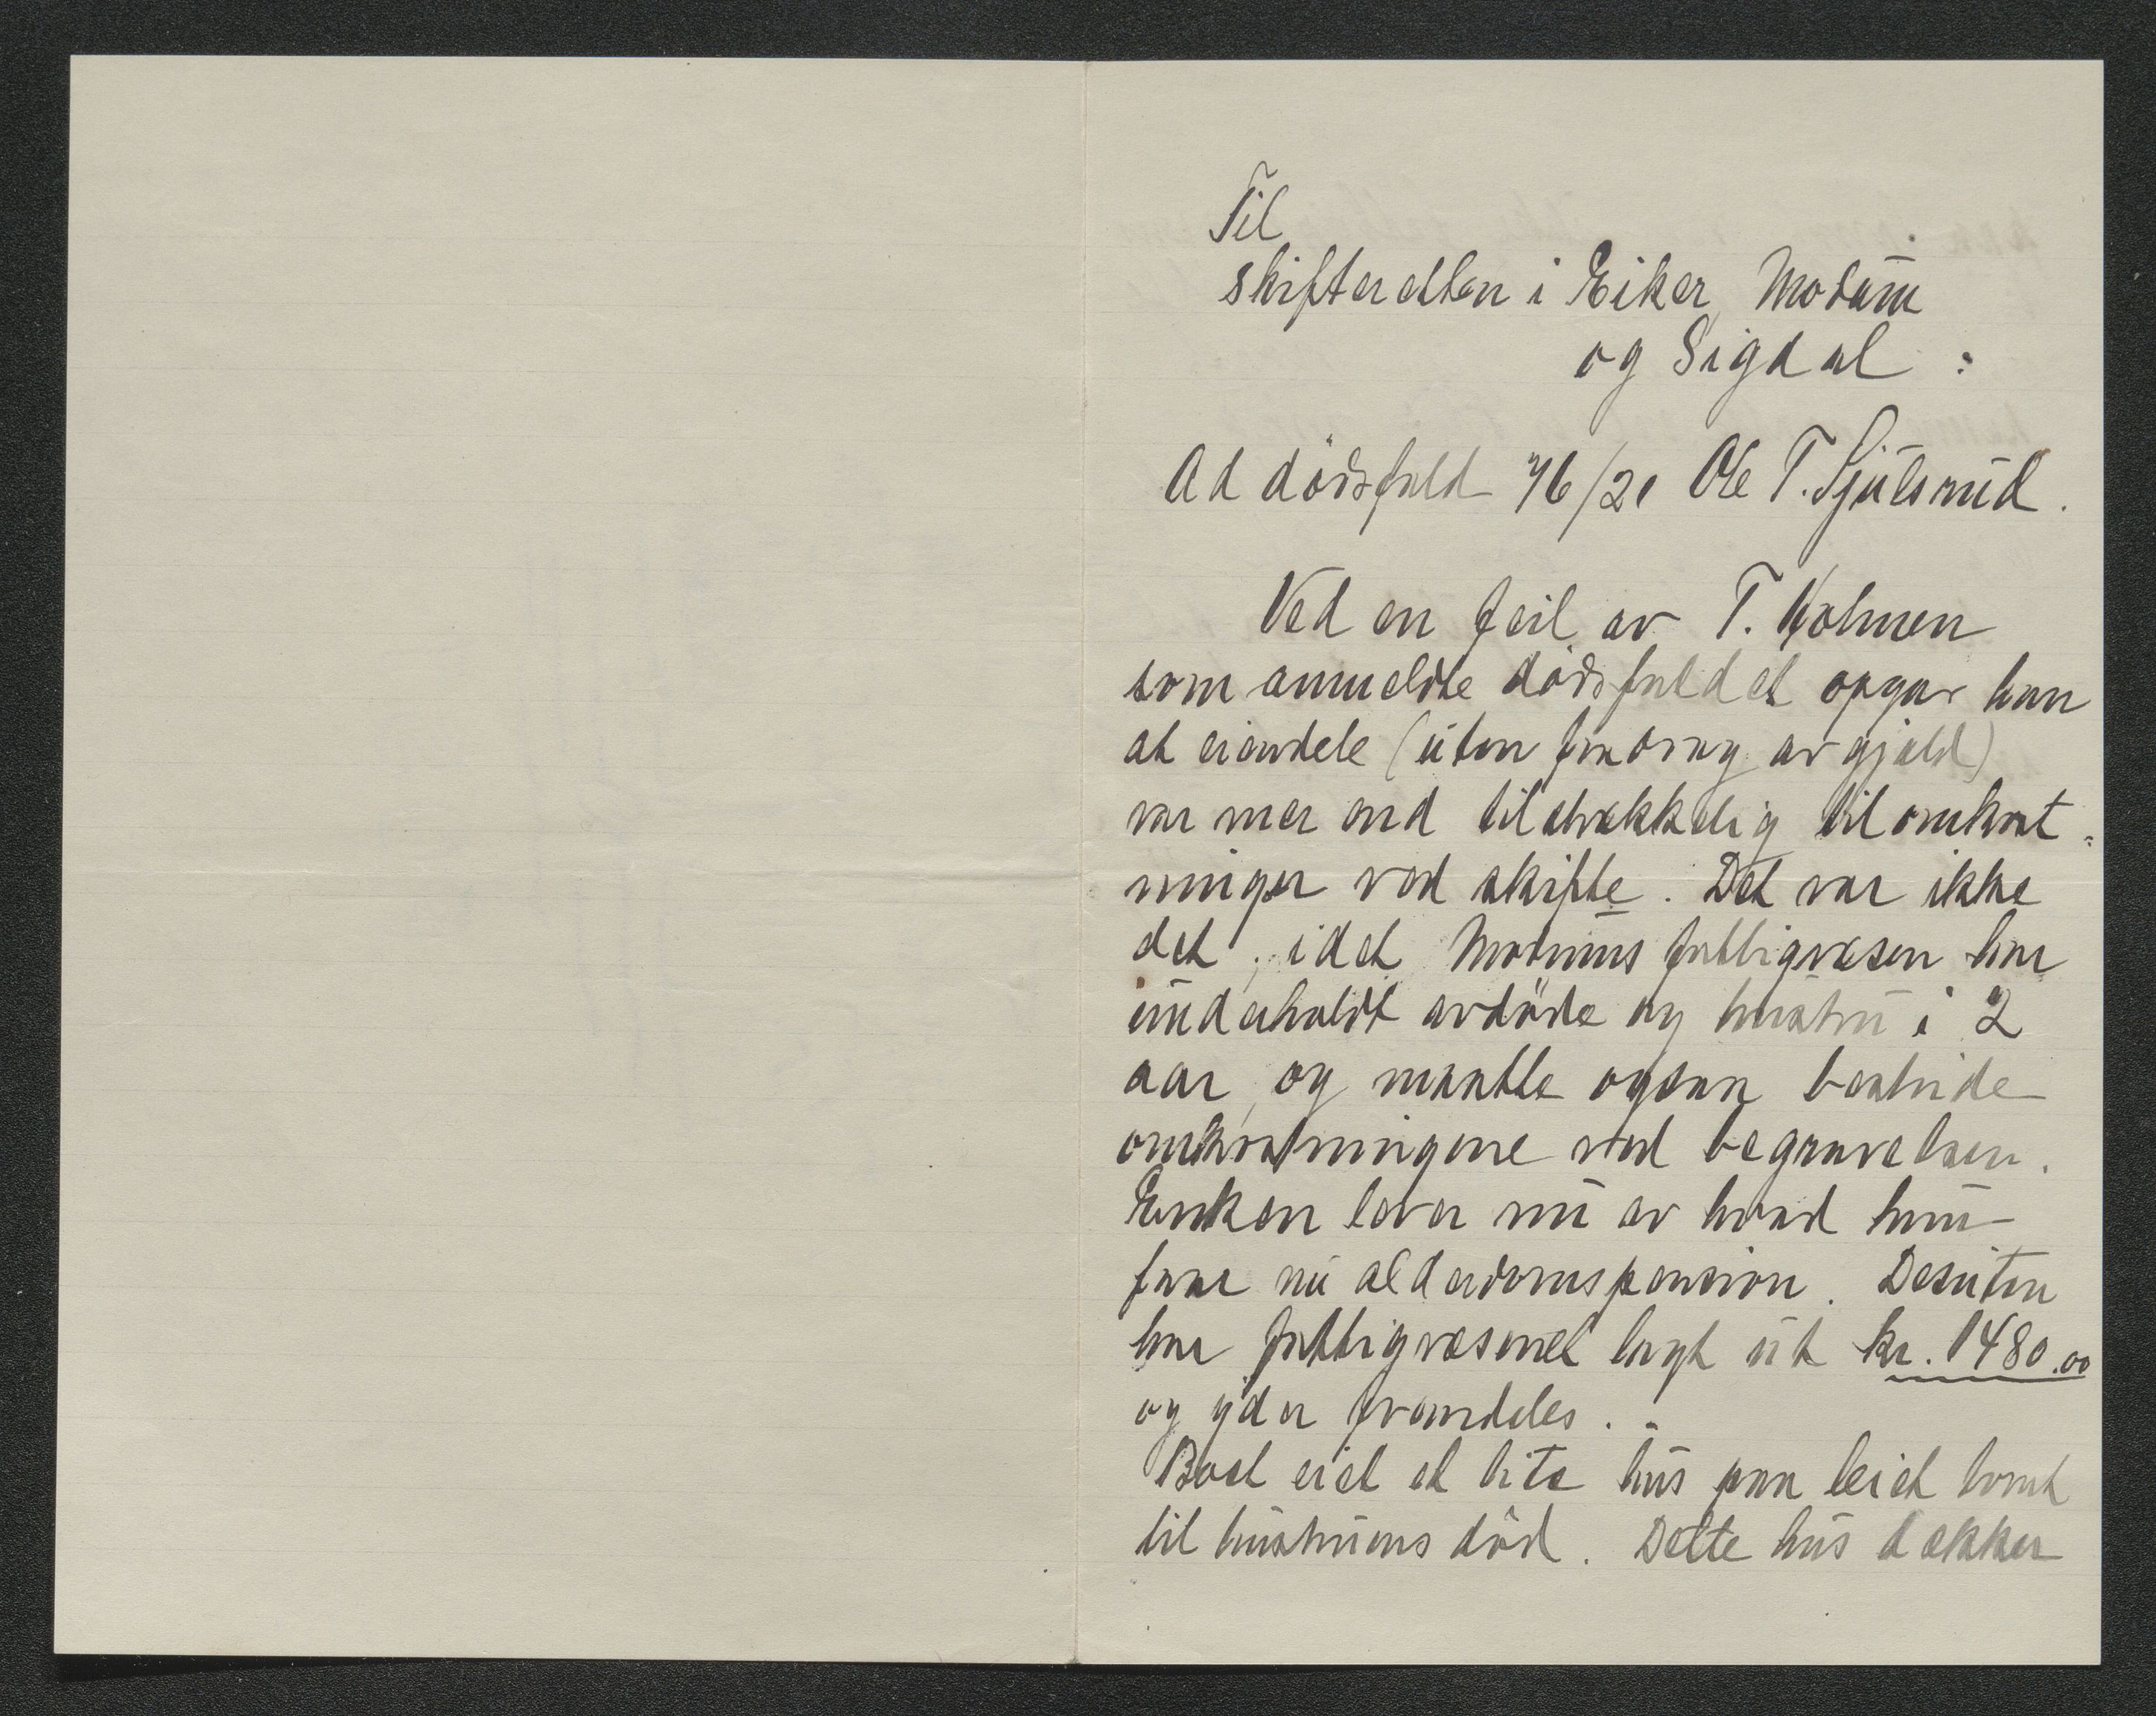 Til
skifteretten i Eiker, Modum
og Sigdal :
Ad dödsfald 76/21 Ole T. Sjulsrud.
Ved en feil av T. Holmen
som anmeldte dödsfaldet opgav han
at eiendele (uten fradrag av gjæld)
var mer end tilstrækkelig til omkost-
ninger ved skifte. Det var ikke
det, idet Modums fattigvæsen har
underholdt avdöde og hustru i 2
aar, og maatte ogsaa bestride
omkostningene ved begravelsen.
Enken lever nu av hvad hun
faar nu alderdomspension. Desuten
har fattigvæsenet lagt ut kr. 1480.00
og yder fremdeles.
Boet eiet et lite hus paa leiet tomt
til hustruens död. Dette hus dækker